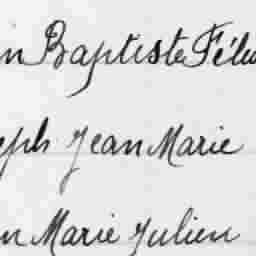 in Baptiste Féli
eph Jean Marie
n Marie Julien